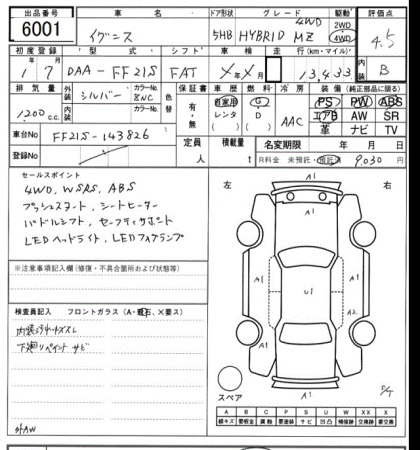 出品番号 車名 ドア形状 グレード 駆動 評価点
6001 イグニス 5HB HYBRID MZ 4WD 2WD 4WD 4.5
初度登録 型式 シフト 車検 走行(km・マイル) 内装
1/7 DAA-FF21S FAT X年X月 13,433 B
排気量 外装 シルバー カラーNo. 8NC 色替 保証書 車歴 燃料 冷房 装備 (純正部品に限る)
1200 c.c. 内装 カラーNo. 有・無 自家用 G AAC PS PW ABS
レンタ D エアB AW SR
車台No FF21S-143826 革 ナビ TV
登録No 定員 人 積載量 t 名変期限 年 月 日
R料金 未預託・預託済 9,030 円
セールスポイント
4WD, WSRS, ABS
プッシュスタート, シートヒーター
パドルシフト, セーフティサポート
LEDヘッドライト, LEDフォグランプ
左 右
A1
A1 A1
U1
A1 A2
A1
A1
※注意事項記入欄 (修復・不具合箇所および状態等)
検査員記入 フロントガラス (A・飛石、X要ス)
内装
下廻りペイント サビ
スペア
A B C P S U W XX X
線キズ 要板金 腐蝕 要塗装 サビ 凹凸 補修跡 交換跡 要交換